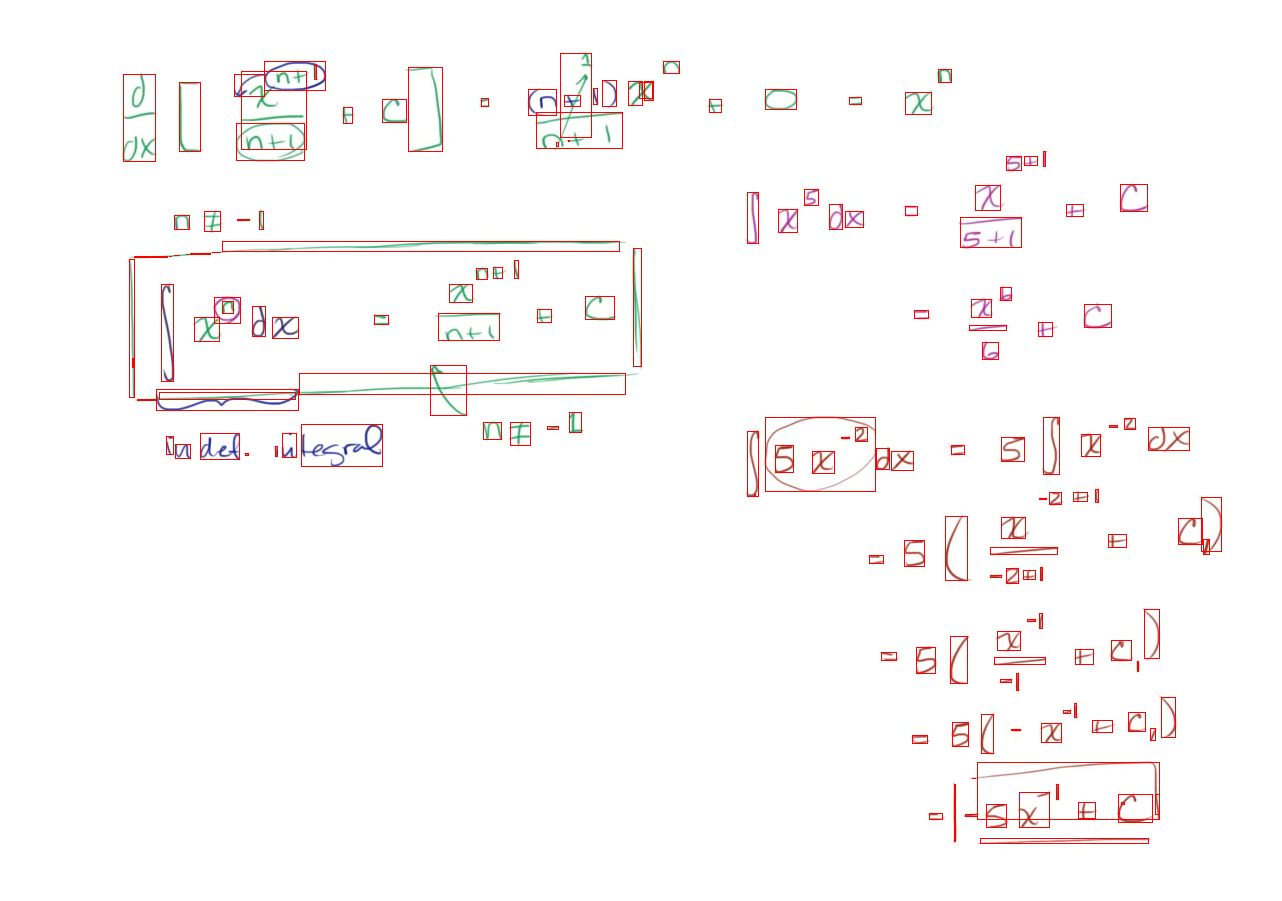 d/dx [ x^(n+1)/(n+1) + C ] = (n+1)x^n/(n+1) + 0 = x^n
1
n ≠ -1
∫ x^n dx = x^(n+1)/(n+1) + C
n ≠ -1
indef. integral
∫ x^5 dx = x^(5+1)/(5+1) + C
= x^6/6 + C
∫ 5x^(-2) dx = 5 ∫ x^(-2) dx
= 5 ( x^(-2+1)/(-2+1) + C₁ )
= 5 ( x^(-1)/(-1) + C₁ )
= 5 ( -x^(-1) + C₁ )
= -5x^(-1) + C